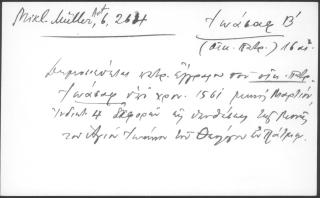 Mikl. Müller, Act. 6, 264
Ἰωάσαφ Β'
(οἰκ. πατρ.) 16 αἰ.
Δημοσιεύεται πατρ. ἔγγραφον τοῦ οἰκ. πατρ.
Ἰωάσαφ ὑπὸ χρον. 1561 μηνὶ Μαρτίῳ,
Ἰνδικτ. 4 ἀφορᾶν εἰς ὑποθέσεις τῆς Μονῆς
τοῦ Ἁγίου Ἰωάννου τοῦ Θεολόγου ἐν Πάτμῳ.